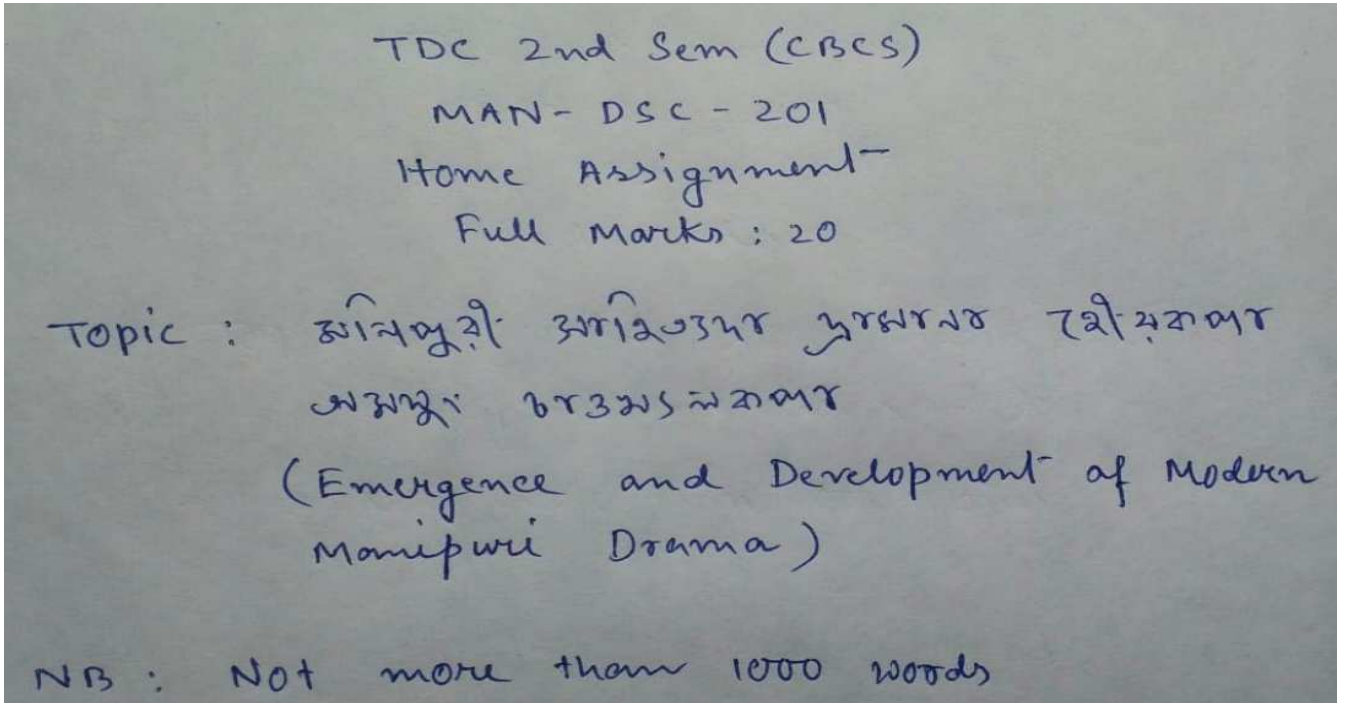 TDC 2nd Sem (CBCS)
MAN-DSC-201
Home Assignment
Full Marks : 20
Topic : মনিপুরী সাহিত্যদা হৌরকপা
অমসুং চাউখৎলকপা
(Emergence and Development of Modern
Manipuri Drama)
NB : Not more than 1000 words